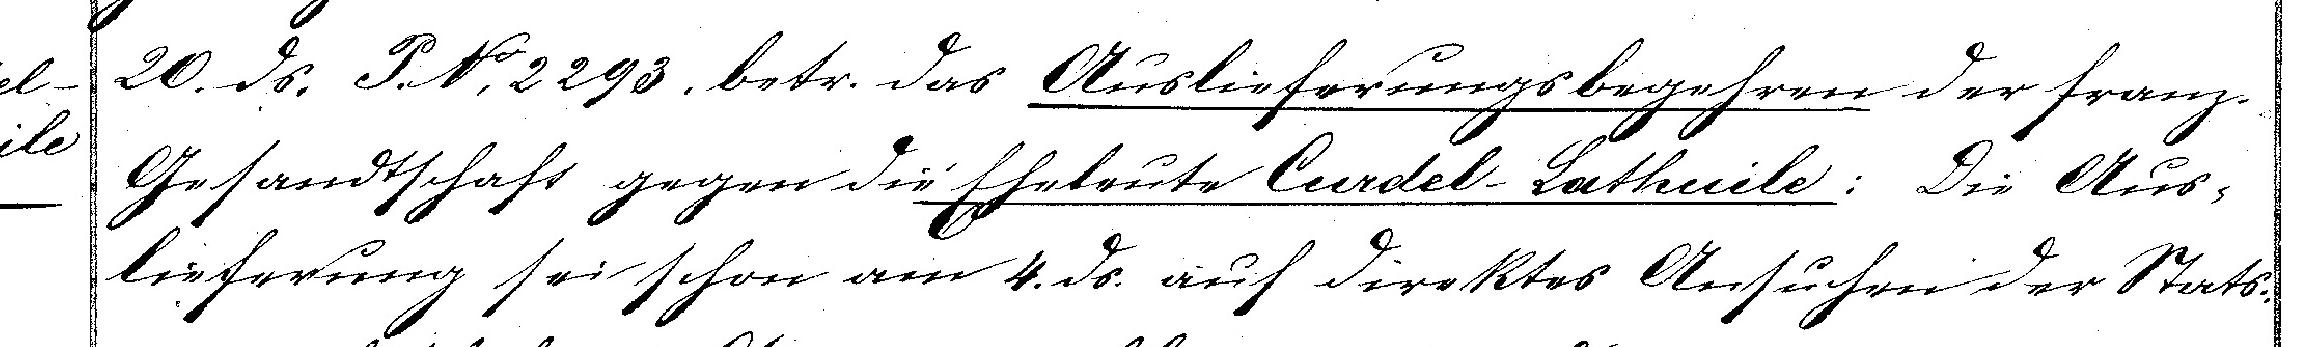 20. ds. P. No. 2293. betr. das Auslieferungsbegehren der franz.
el-
Gesandtschaft gegen die Eheleute Curdel-Lathuile: Die Aus-
ile
lieferung sei schon am 4. ds. auf direktes Ansuchen der Stats-